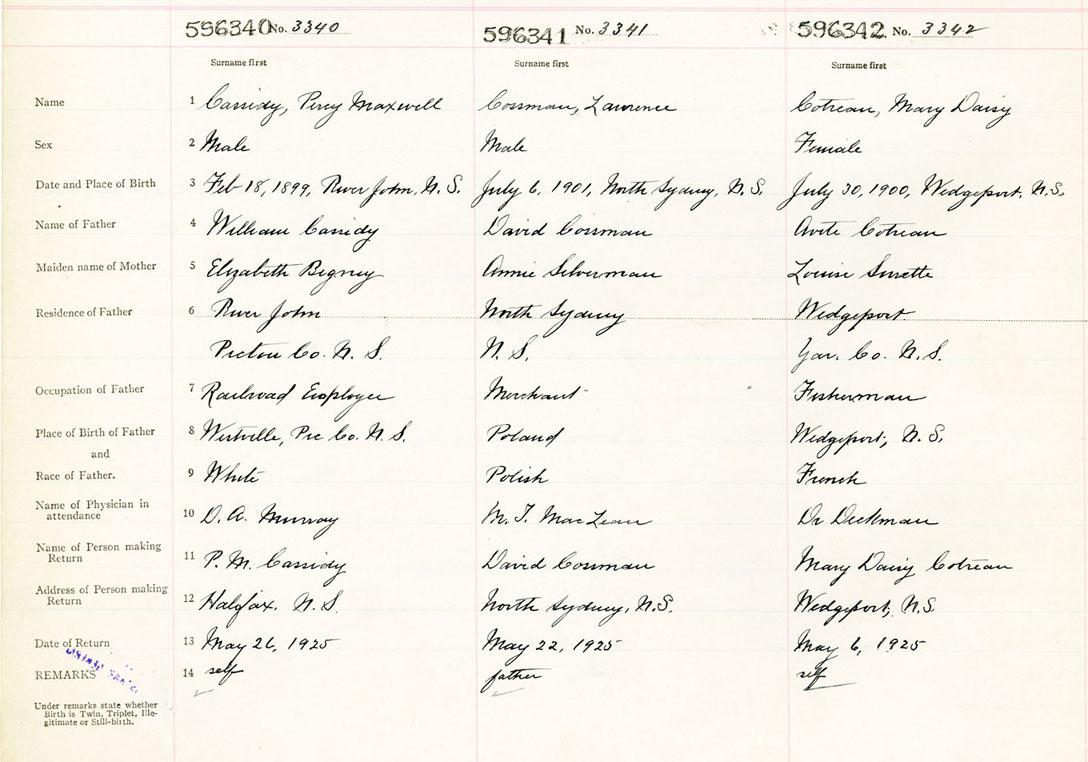 596340 No. 3340 596341 No. 3341 596342 No. 3342
Surname first Surname first Surname first
Name 1 Cassidy, Percy Maxwell Cossman, Lawrence Cotreau, Mary Daisy
Sex 2 Male Male Female
Date and Place of Birth 3 Feb 18, 1899, River John, N.S. July 6, 1901, North Sydney, N.S. July 30, 1900, Wedgeport, N.S.
Name of Father 4 William Cassidy David Cossman Avite Cotreau
Maiden name of Mother 5 Elizabeth Bigney Annie Silverman Louise Surette
Residence of Father 6 River John North Sydney Wedgeport
Pictou Co. N. S. N. S. Yar. Co. N. S.
Occupation of Father 7 Railroad Employee Merchant Fisherman
Place of Birth of Father 8 Westville, Pic Co. N. S. Poland Wedgeport, N. S.
and
Race of Father. 9 White Polish French
Name of Physician in
attendance 10 D. A. Murray MacLean Dr
Name of Person making
Return 11 P. M. Cassidy David Cossman Mary Daisy Cotreau
Address of Person making
Return 12 Halifax. N. S. North Sydney, N.S. Wedgeport, N.S.
Date of Return 13 May 26, 1925 May 22, 1925 May 6, 1925
REMARKS 14 self father self
Under remarks state whether
Birth is Twin, Triplet, Ille-
gitimate or Still-birth.